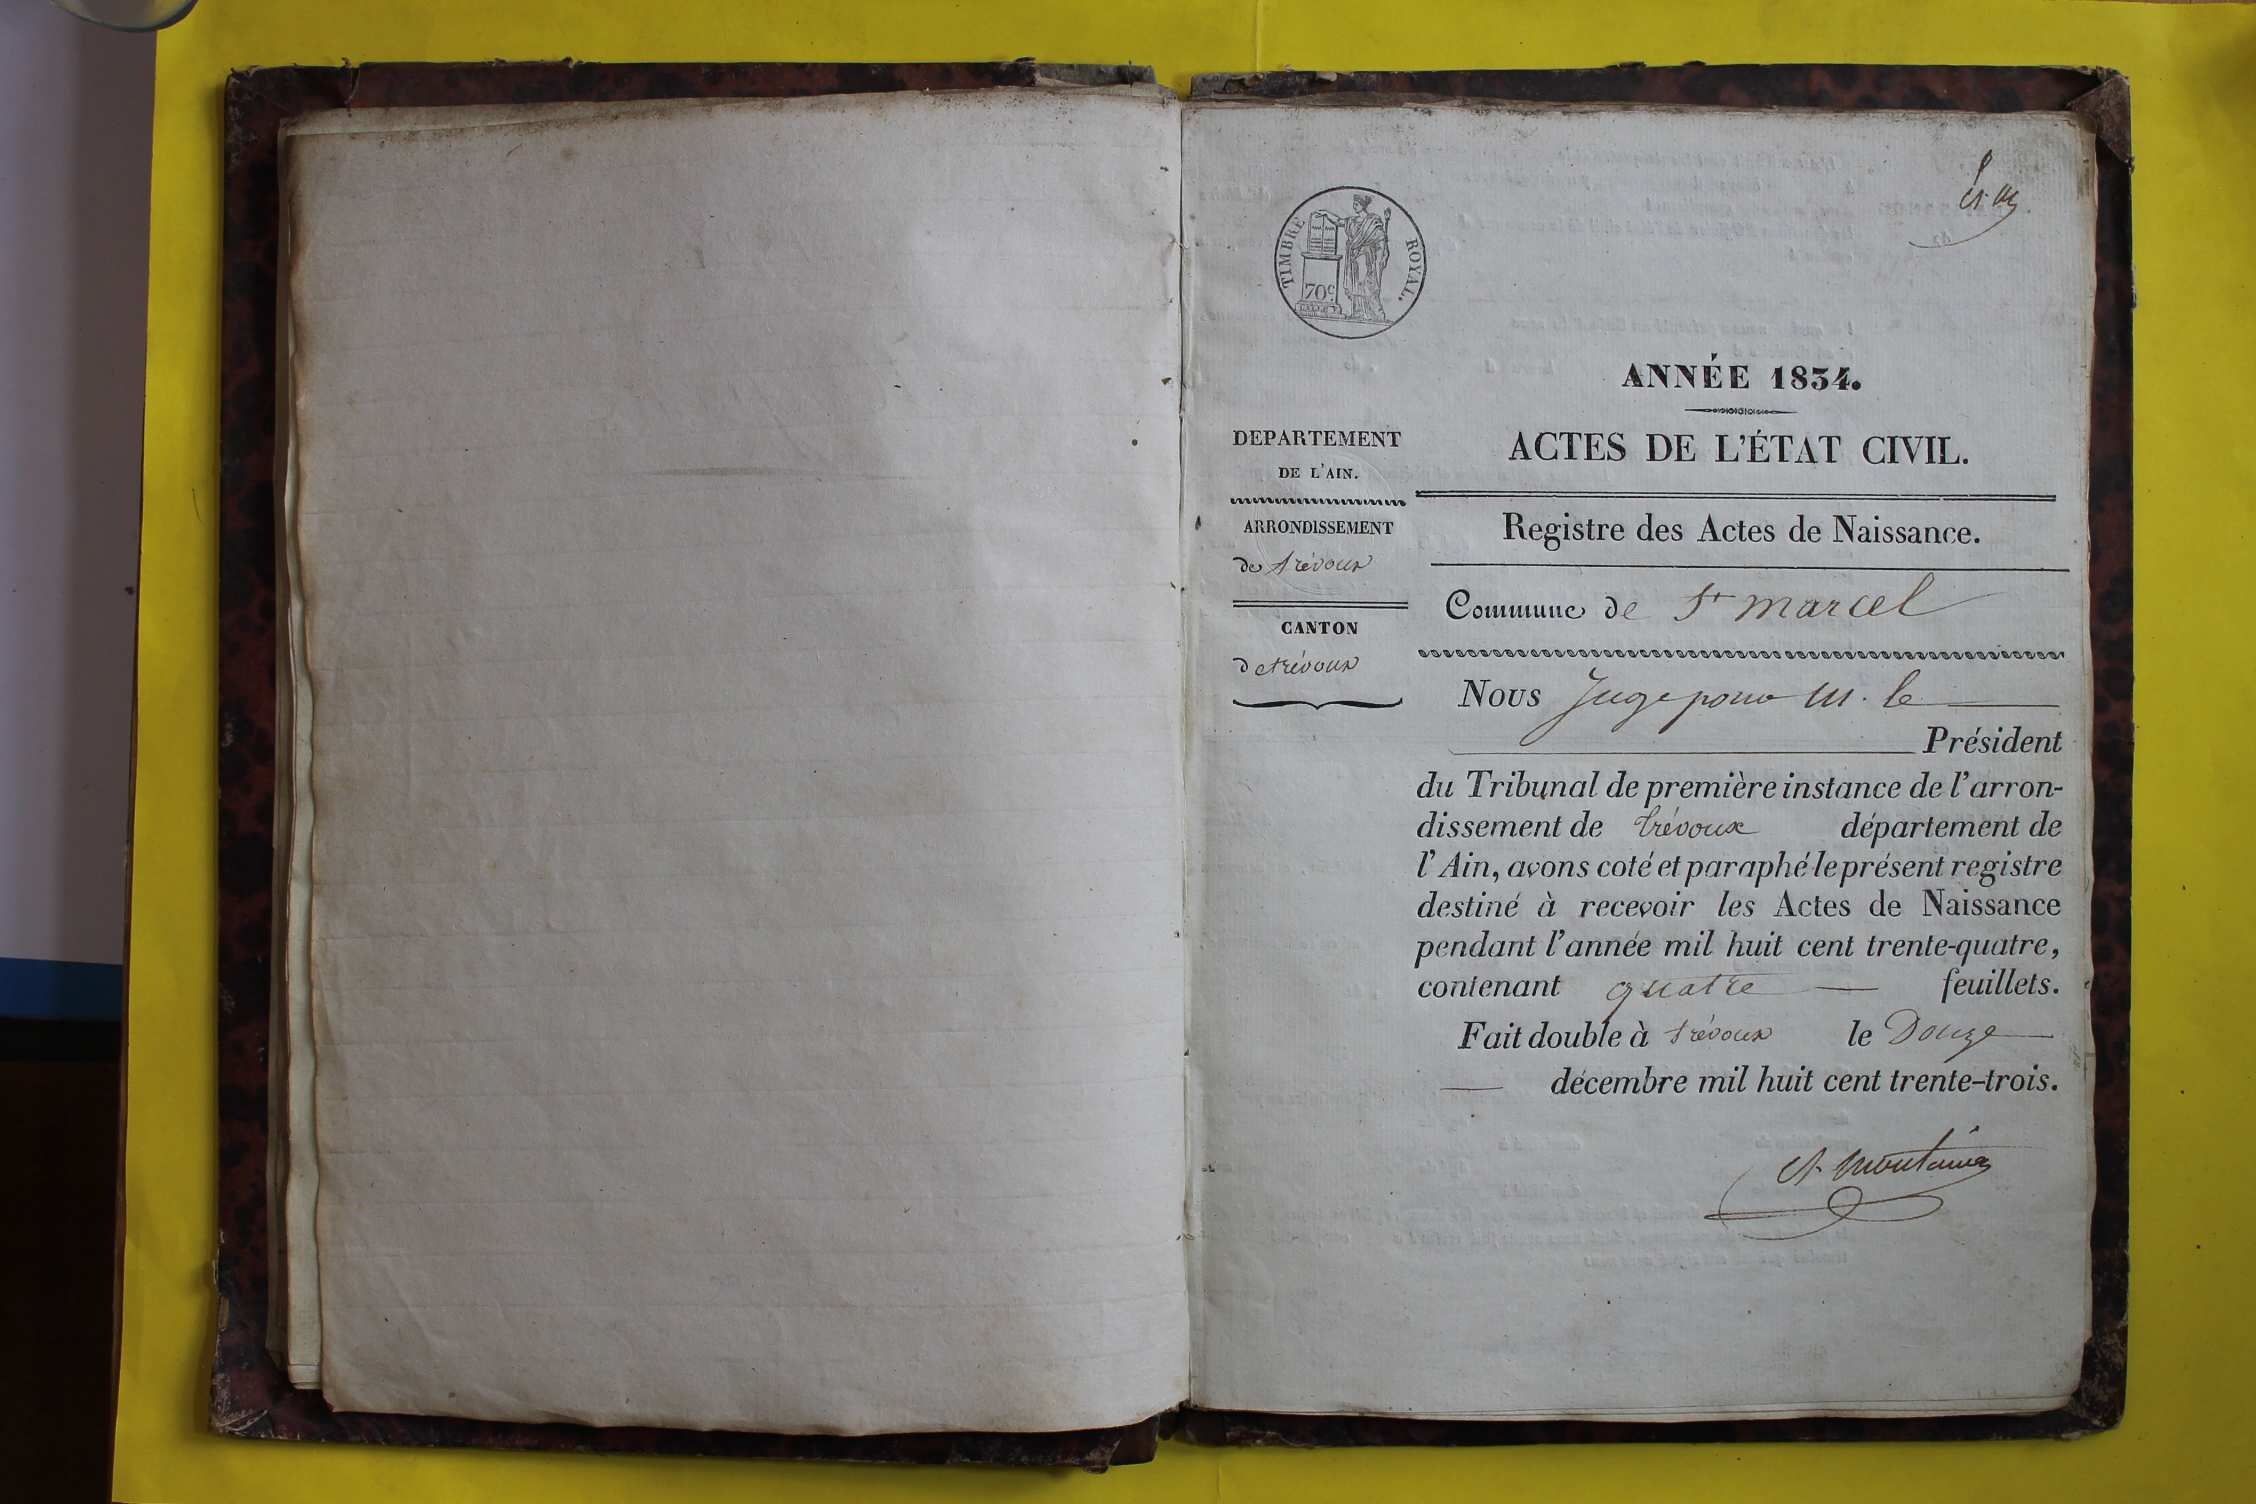 TIMBRE ROYAL.
70c.
ANNÉE 1834.
DEPARTEMENT
DE L'AIN.
ARRONDISSEMENT
de trévoux
CANTON
de trévoux
ACTES DE L'ÉTAT CIVIL.
Registre des Actes de Naissance.
Commune de St marcel
Nous Juge pour M. le
Président
du Tribunal de première instance de l'arron-
dissement de trévoux département de
l'Ain, avons coté et paraphé le présent registre
destiné à recevoir les Actes de Naissance
pendant l'année mil huit cent trente-quatre,
contenant quatre feuillets.
Fait double à trévoux le Douze
décembre mil huit cent trente-trois.